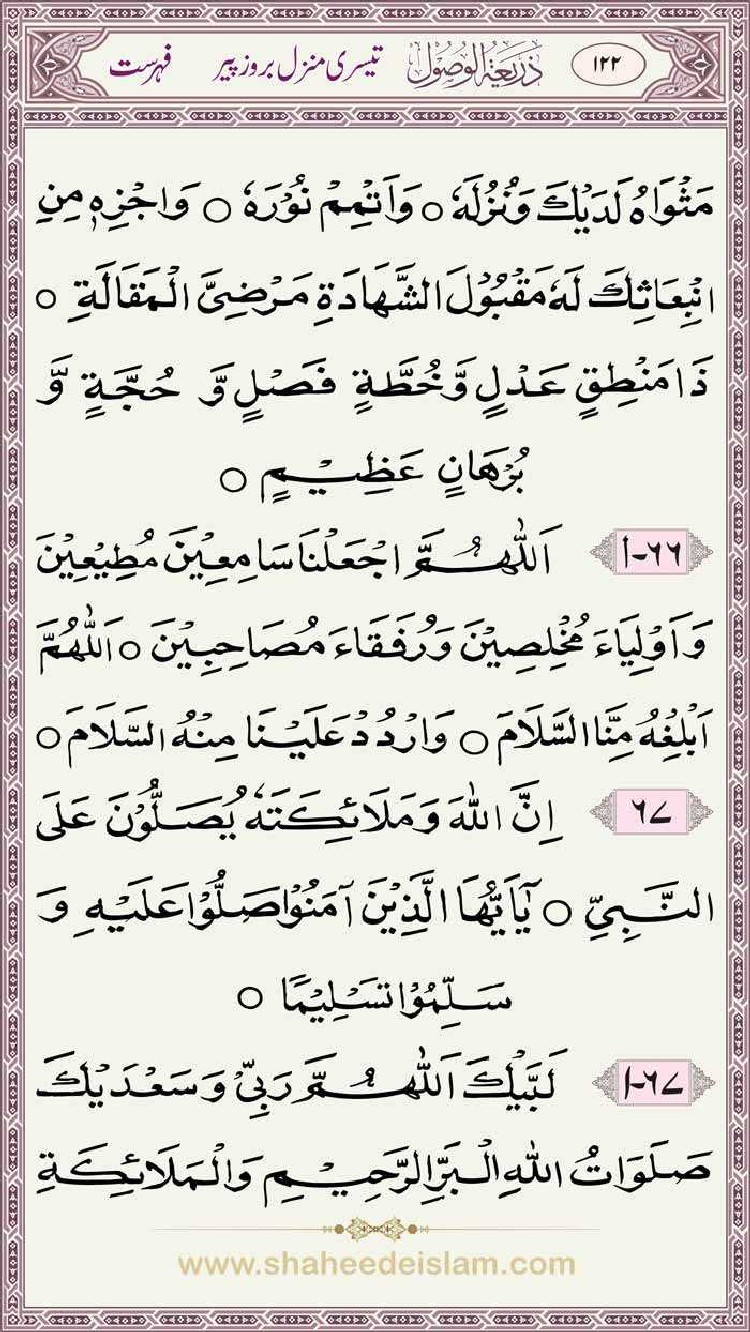 ۱۲۲ ذَرِيعَةُ الْوُصُوْل تیسری منزل بروز پیر فہرست
مَثْوَاهُ لَدَيْكَ وَنُزُلَهٗ ○ وَاَتْمِمْ نُوْرَهٗ ○ وَاجْزِهٖ مِنِ
انْبِعَاثِكَ لَهٗ مَقْبُوْلَ الشَّهَادَةِ مَرْضِىَّ الْمَقَالَةِ ○
ذَا مَنْطِقٍ عَدْلٍ وَّخُطَّةٍ فَصْلٍ وَّ حُجَّةٍ وَّ
بُرْهَانٍ عَظِيْمٍ ○
۶۶-أ اَللّٰهُمَّ اجْعَلْنَا سَامِعِيْنَ مُطِيْعِيْنَ
وَاَوْلِيَاءَ مُخْلِصِيْنَ وَرُفَقَاءَ مُصَاحِبِيْنَ ○ اَللّٰهُمَّ
اَبْلِغْهُ مِنَّا السَّلَامَ ○ وَارْدُدْ عَلَيْنَا مِنْهُ السَّلَامَ ○
۶۷ اِنَّ اللهَ وَمَلَائِكَتَهٗ يُصَلُّوْنَ عَلَى
النَّبِيِّ ○ يٰاَيُّهَا الَّذِيْنَ آمَنُوْا صَلُّوْا عَلَيْهِ وَ
سَلِّمُوْا تَسْلِيْمًا ○
۶۷-ا لَبَّيْكَ اَللّٰهُمَّ رَبِّيْ وَسَعْدَيْكَ
صَلَوَاتُ اللهِ الْبَرِّ الرَّحِيْمِ وَالْمَلَائِكَةِ
www.shaheedeislam.com